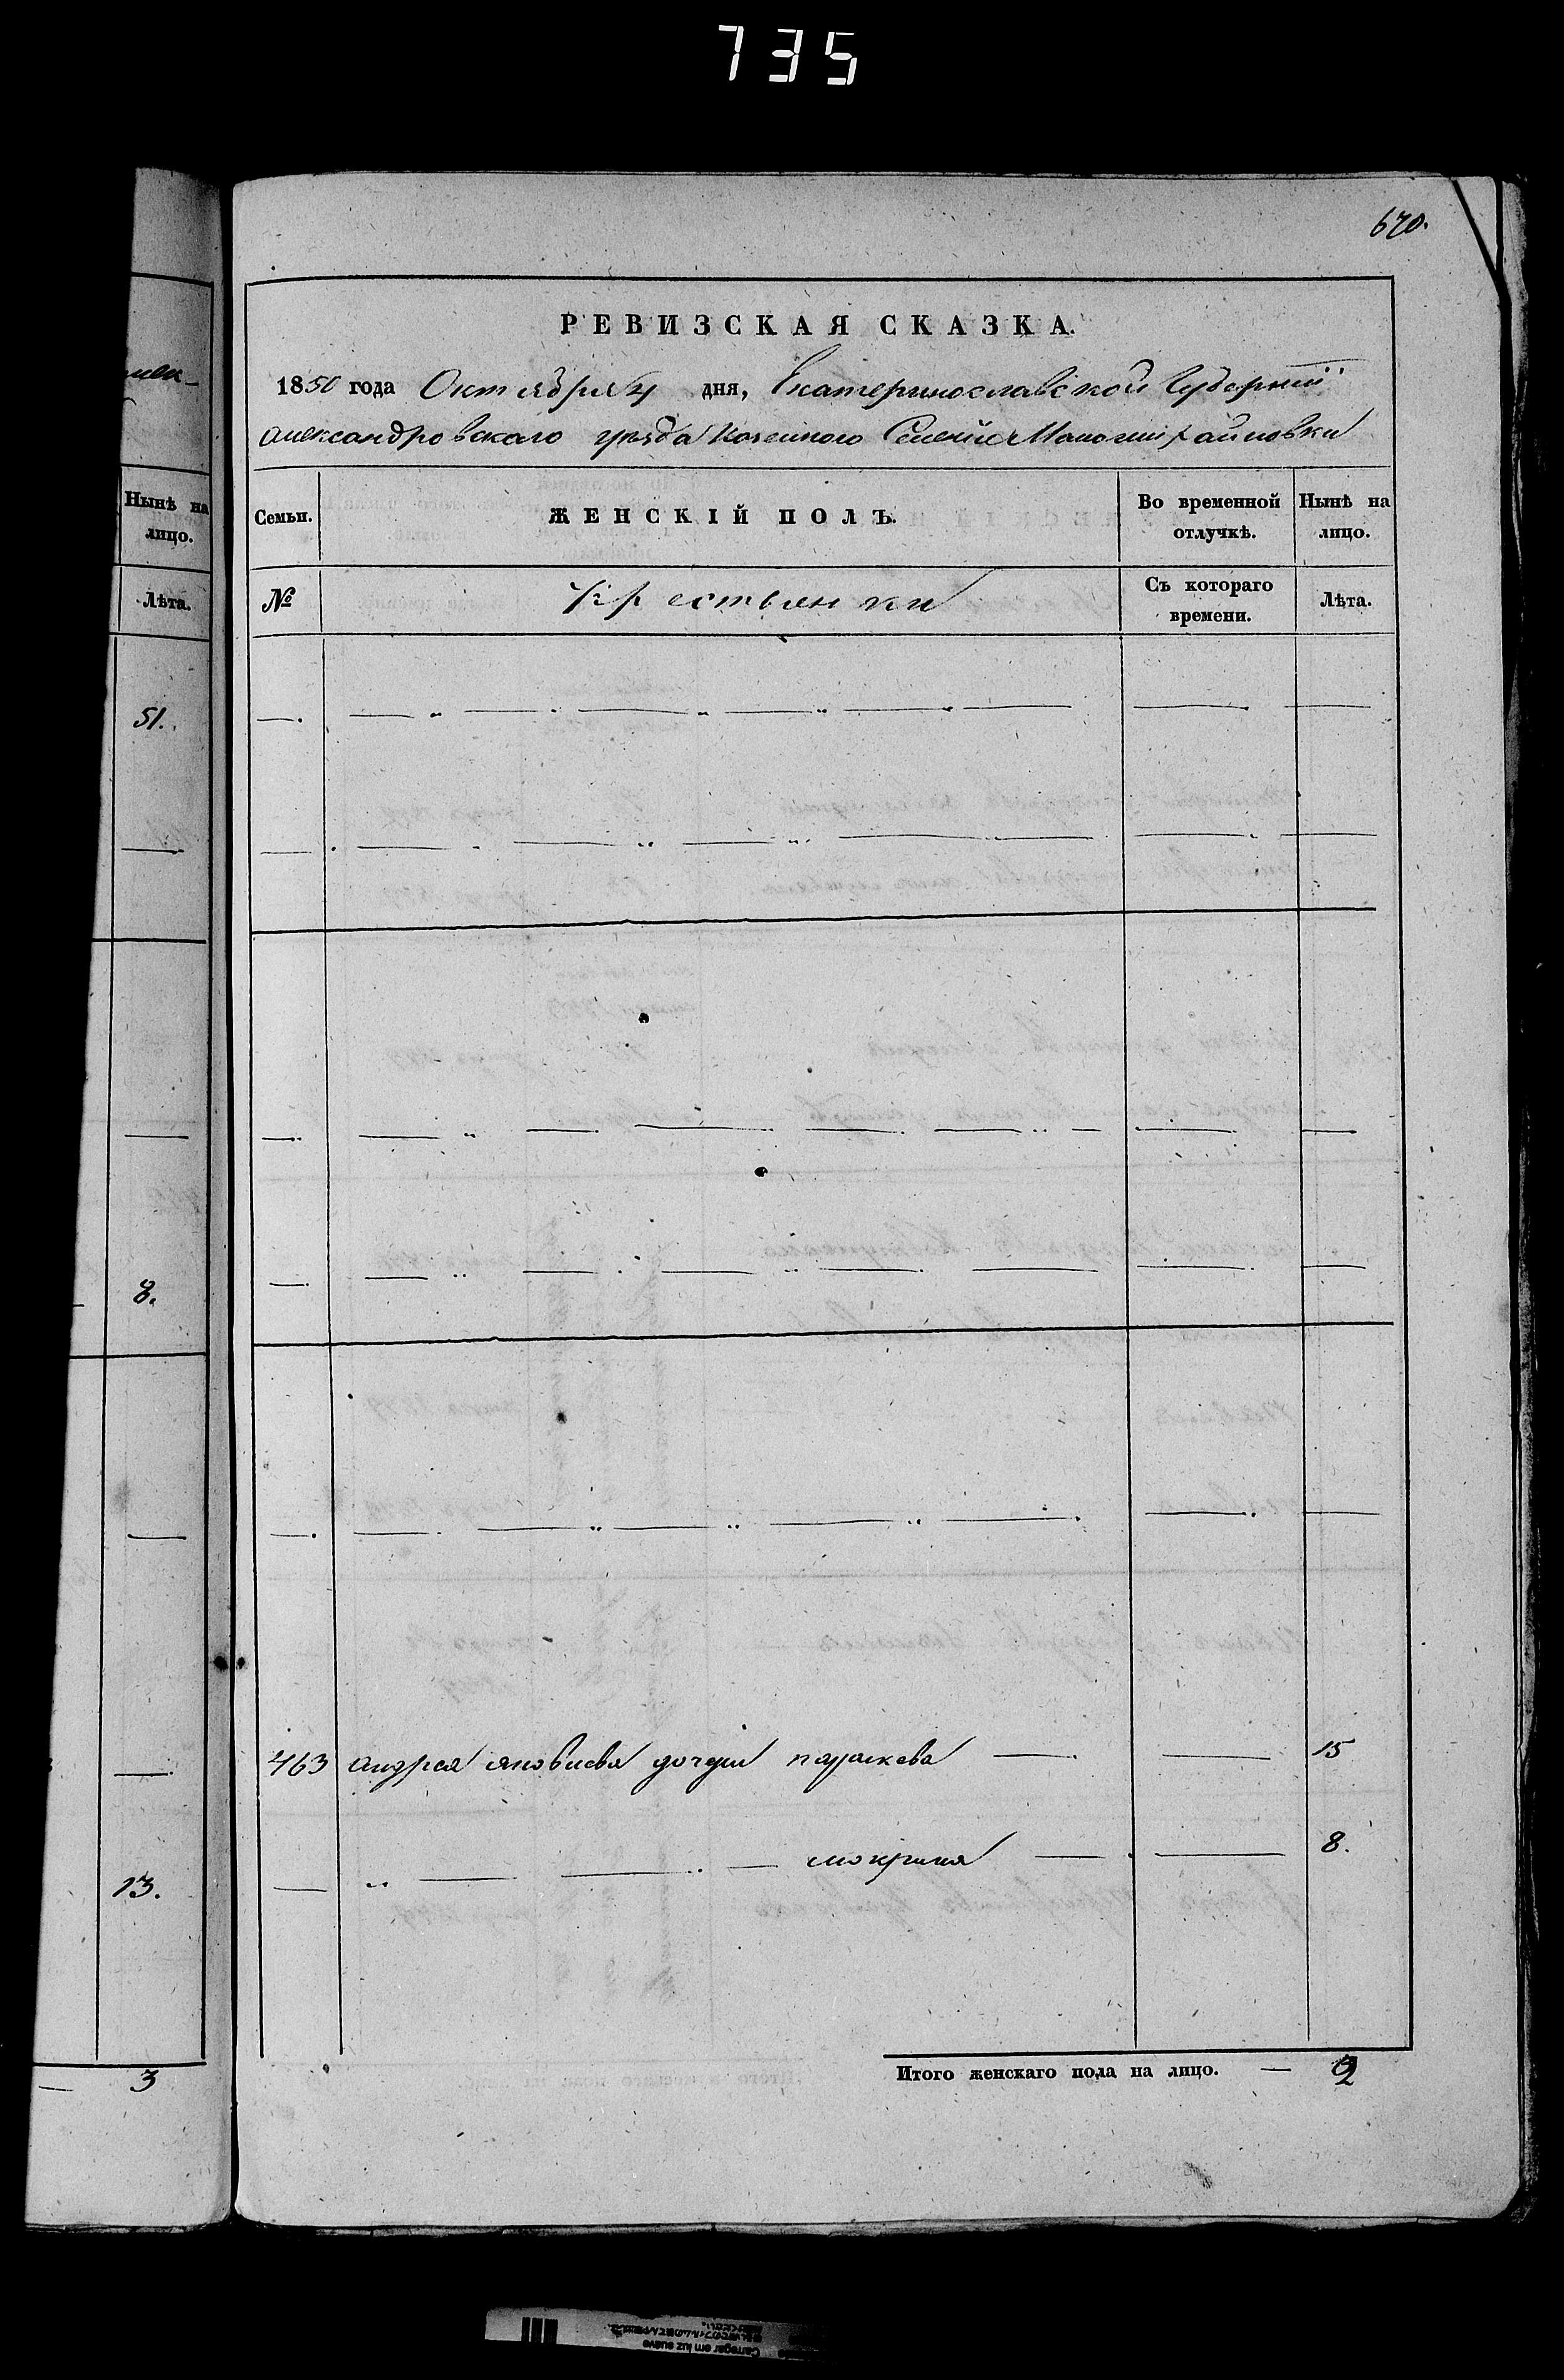 735
670.
РЕВИЗСКАЯ СКАЗКА.
1850 года Октября 4 дня, Екатеринославской Губернии
Александровскаго уезда Казенного Селения Маломихайловки
Семьи. ЖЕНСКІЙ ПОЛЪ. Во временной отлучкѣ. Нынѣ на лицо.
№ Крестьянки Съ котораго времени. Лѣта.
463 Андрея Яковлева дочери параскева 15
мокрина 8.
Итого женскаго пола на лицо. — 2
Нынѣ на лицо.
Лѣта.
51.
8.
13.
3